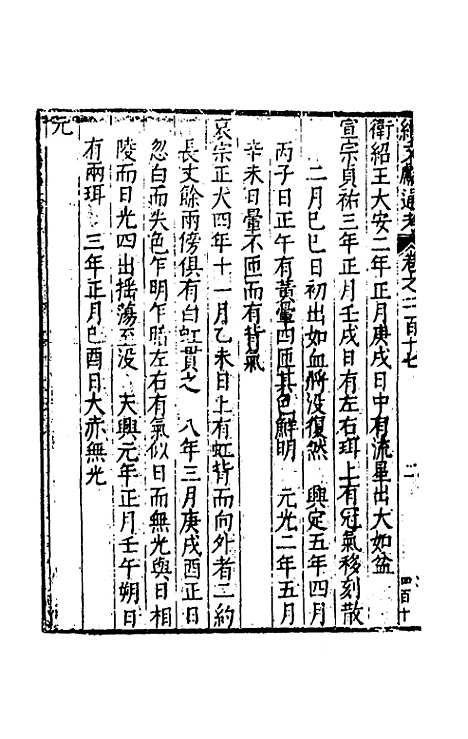 續文獻通考 卷之二百十七 二 四百十
衛紹王大安二年正月庚戌日中有流星出大如盆
宣宗貞祐三年正月壬戌日有左右珥上有冠氣移刻散
二月巳巳日初出如血將没復然 興定五年四月
丙子日正午有黄暈四匝其色鮮明 元光二年五月
辛未日暈不匝而有背氣
哀宗正大四年十一月乙未日上有虹背而向外者二約
長丈餘兩傍俱有白虹貫之 八年三月庚戌酉正日
忽白而失色乍明乍暗左右有氣似日而無光與日相
陵而日光四出摇蕩至没 天興元年正月壬午朔日
有兩珥 三年正月己酉日大赤無光
元